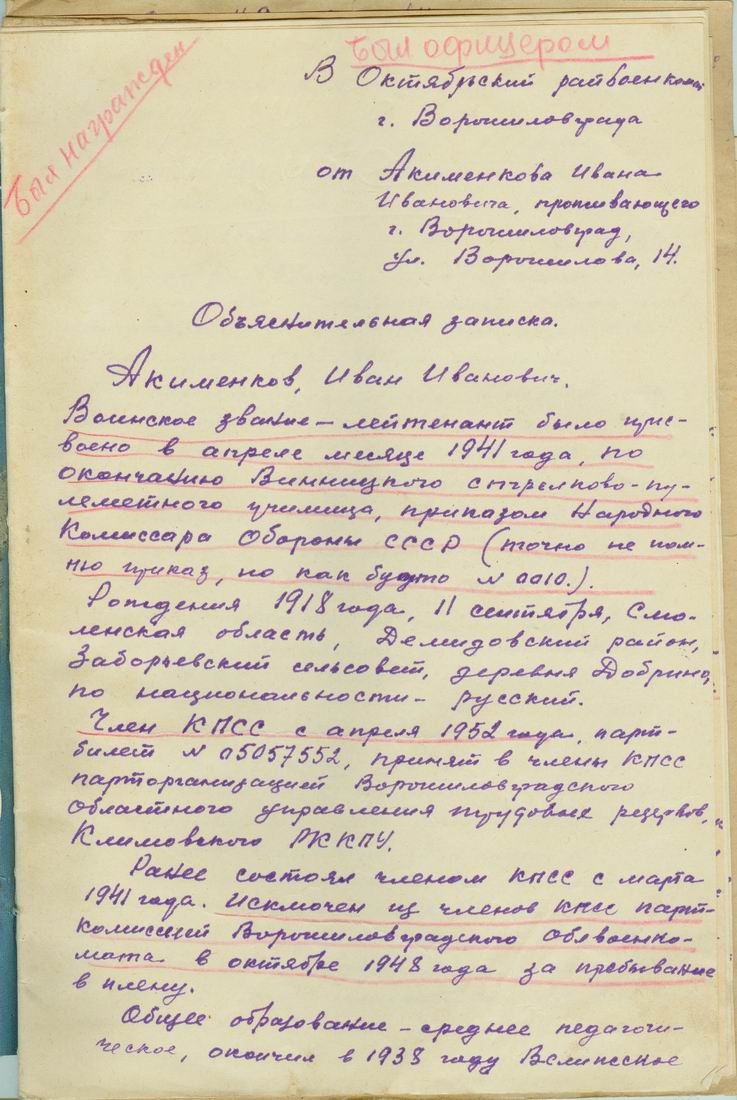 Был награжден
Был офицером
В Октябрьский райвоенкомат
г. Ворошиловграда
от Акименкова Ивана
Ивановича, проживающего
г. Ворошиловград,
ул. Ворошилова, 14.
Объяснительная записка.
Акименков, Иван Иванович.
Воинское звание – лейтенант было прис-
воено в апреле месяце 1941 года, по
окончанию Винницкого стрелково-пу-
леметного училища, приказом Народного
Комиссара Обороны СССР (точно не пом-
ню приказ, но как будто № 0010.).
Рождения 1918 года, 11 сентября, Смо-
ленская область, Демидовский район,
Заборьевский сельсовет, деревня Добрино,
по национальности – русский.
Член КПСС с апреля 1952 года, парт-
билет № 05057552, принят в члены КПСС
парторганизацией Ворошиловградского
областного управления трудовые резервов,
Климовского РК КПУ.
Ранее состоял членом КПСС с марта
1941 года. Исключен из членов КПСС парт-
комиссией Ворошиловградского Облвоенко-
мата в октябре 1948 года за пребывание
в плену.
Общее образование – среднее педагоги-
ческое, окончил в 1938 году Велижское